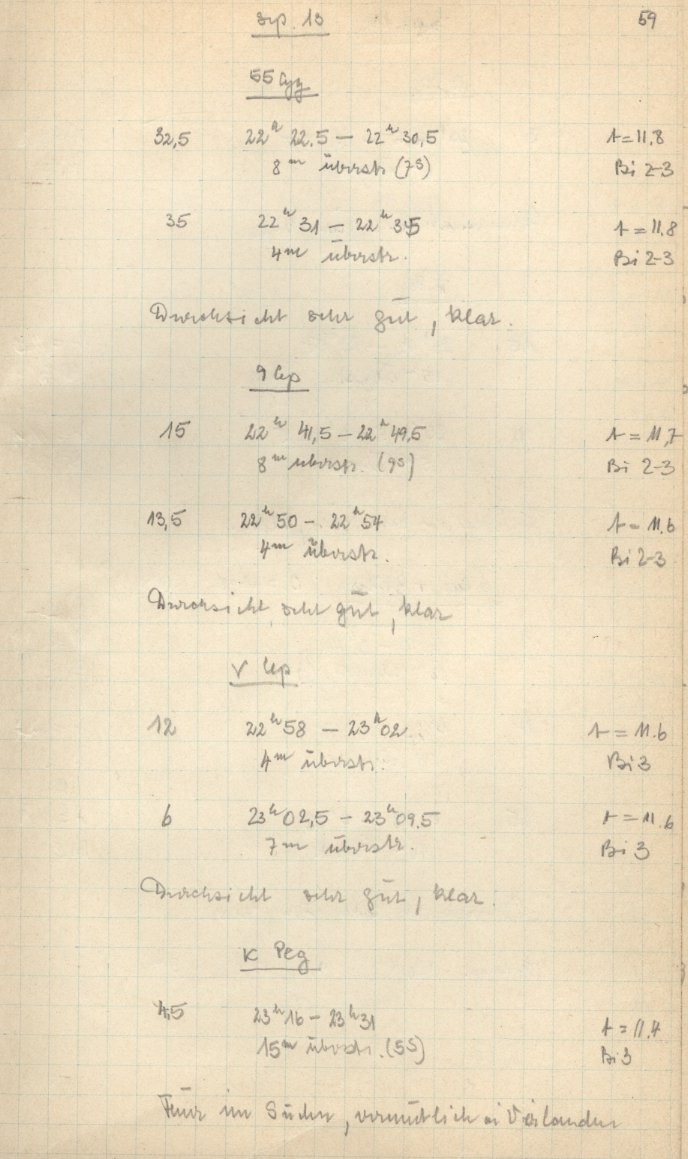 Sep. 13 59
55 Cyg
32,5 22ʰ 22.5 – 22ʰ 30,5 t = 11.8
8ᵐ überstr. (7S) Bi 2-3
35 22ʰ 31 – 22ʰ 35 t = 11.8
4ᵐ überstr. Bi 2-3
Durchsicht sehr gut, klar.
9 Cep
15 22ʰ 41,5 – 22ʰ 49,5 t = 11,7
8ᵐ überstr. (9S) Bi 2-3
13,5 22ʰ 50 – 22ʰ 54 t = 11.6
4ᵐ überstr. Bi 2-3
Durchsicht sehr gut, klar
ν Cep
12 22ʰ 58 – 23ʰ 02 t = 11.6
4ᵐ überstr. Bi 3
6 23ʰ 02,5 – 23ʰ 09.5 t = 11.6
7ᵐ überstr. Bi 3
Durchsicht sehr gut, klar.
κ Peg
4,5 23ʰ 16 – 23ʰ 31 t = 11.4
15ᵐ überstr. (5S) Bi 3
Feuer im Süden, vermutlich